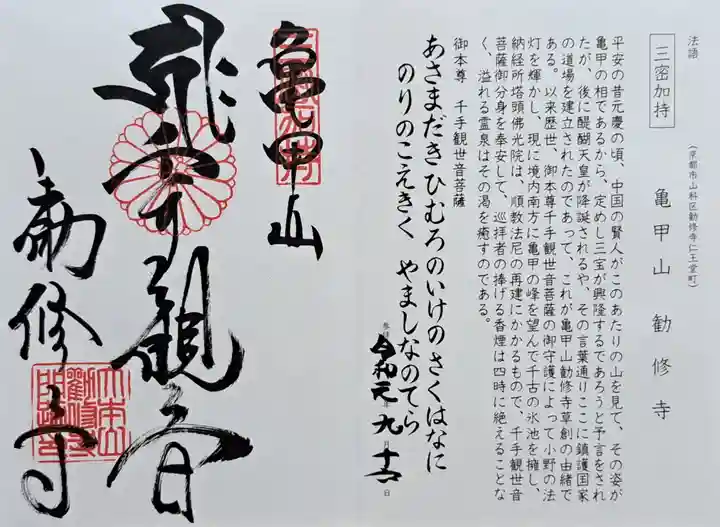 法語
三密加持
(京都市山科区勧修寺仁王堂町)
亀甲山 勧修寺
平安の昔元慶の頃、中国の賢人がこのあたりの山を見て、その姿が
亀甲の相であるから、定めし三宝が興隆するであろうと予言をされ
たが、後に醍醐天皇が降誕されるや、その言葉通りここに鎮護国家
の道場を建立されたのであって、これが亀甲山勧修寺草創の由緒で
ある。以来歴世、御本尊千手観世音菩薩の御守護によって小野の法
灯を輝かし、現に境内南方に亀甲の峰を望んで千古の氷池を擁し、
納経所塔頭佛光院は、順教法尼の再建にかかるもので、千手観世音
菩薩御分身を奉安して、巡拝者の捧げる香煙は四時に絶えることな
く、溢れる霊泉はその渇を癒すのである。
御本尊 千手観世音菩薩
あさまだきひむろのいけのさくはなに
のりのこえきく やましなのてら
令和元年九月十六日
亀甲山
千手観音
勧修寺